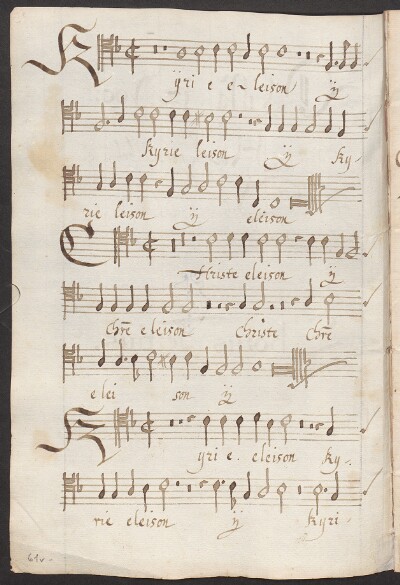 Kyri e e- leison ij
Kyrie leison ij ky-
rie leison ij eleison
Christe eleison ij
Chrē eleison Christe Chrē
elei son ij
Kyri e eleison ky-
rie eleison ij kyri-